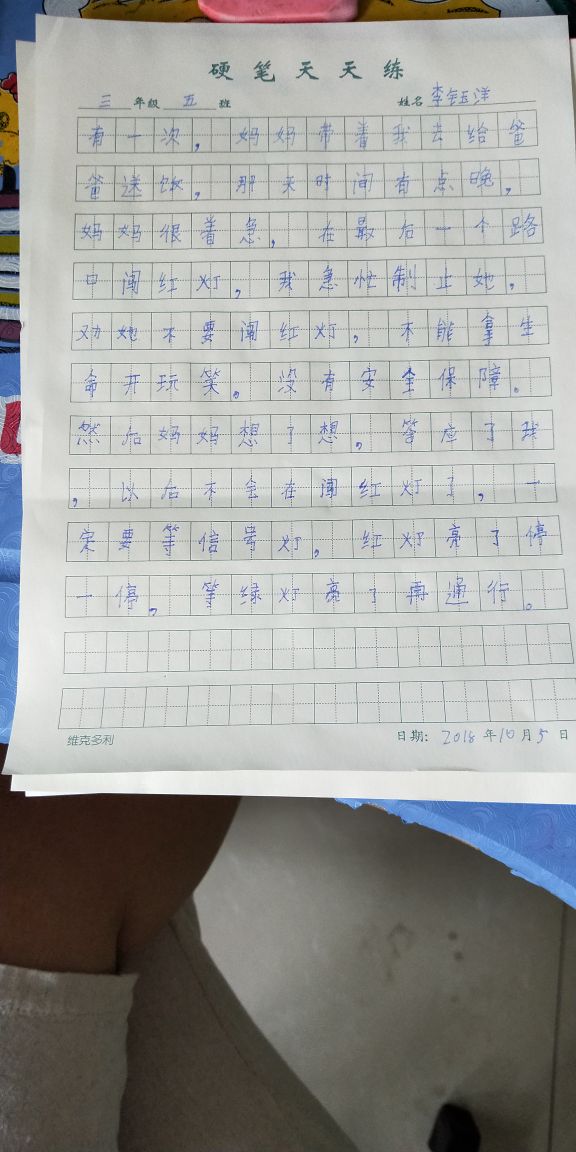 硬笔天天练
三年级 五班 姓名 李钰洋
有一次,妈妈带着我去给爸
爸送饭,那天时间有点晚,
妈妈很着急,在最后一个路
口闯红灯,我急忙制止她,
劝她不要闯红灯,不能拿生
命开玩笑。没有安全保障。
然后妈妈想了想,答应了我
,以后不会在闯红灯了,一
定要等信号灯,红灯亮了停
一停,等绿灯亮了再通行。
维克多利 日期: 2018年10月5日